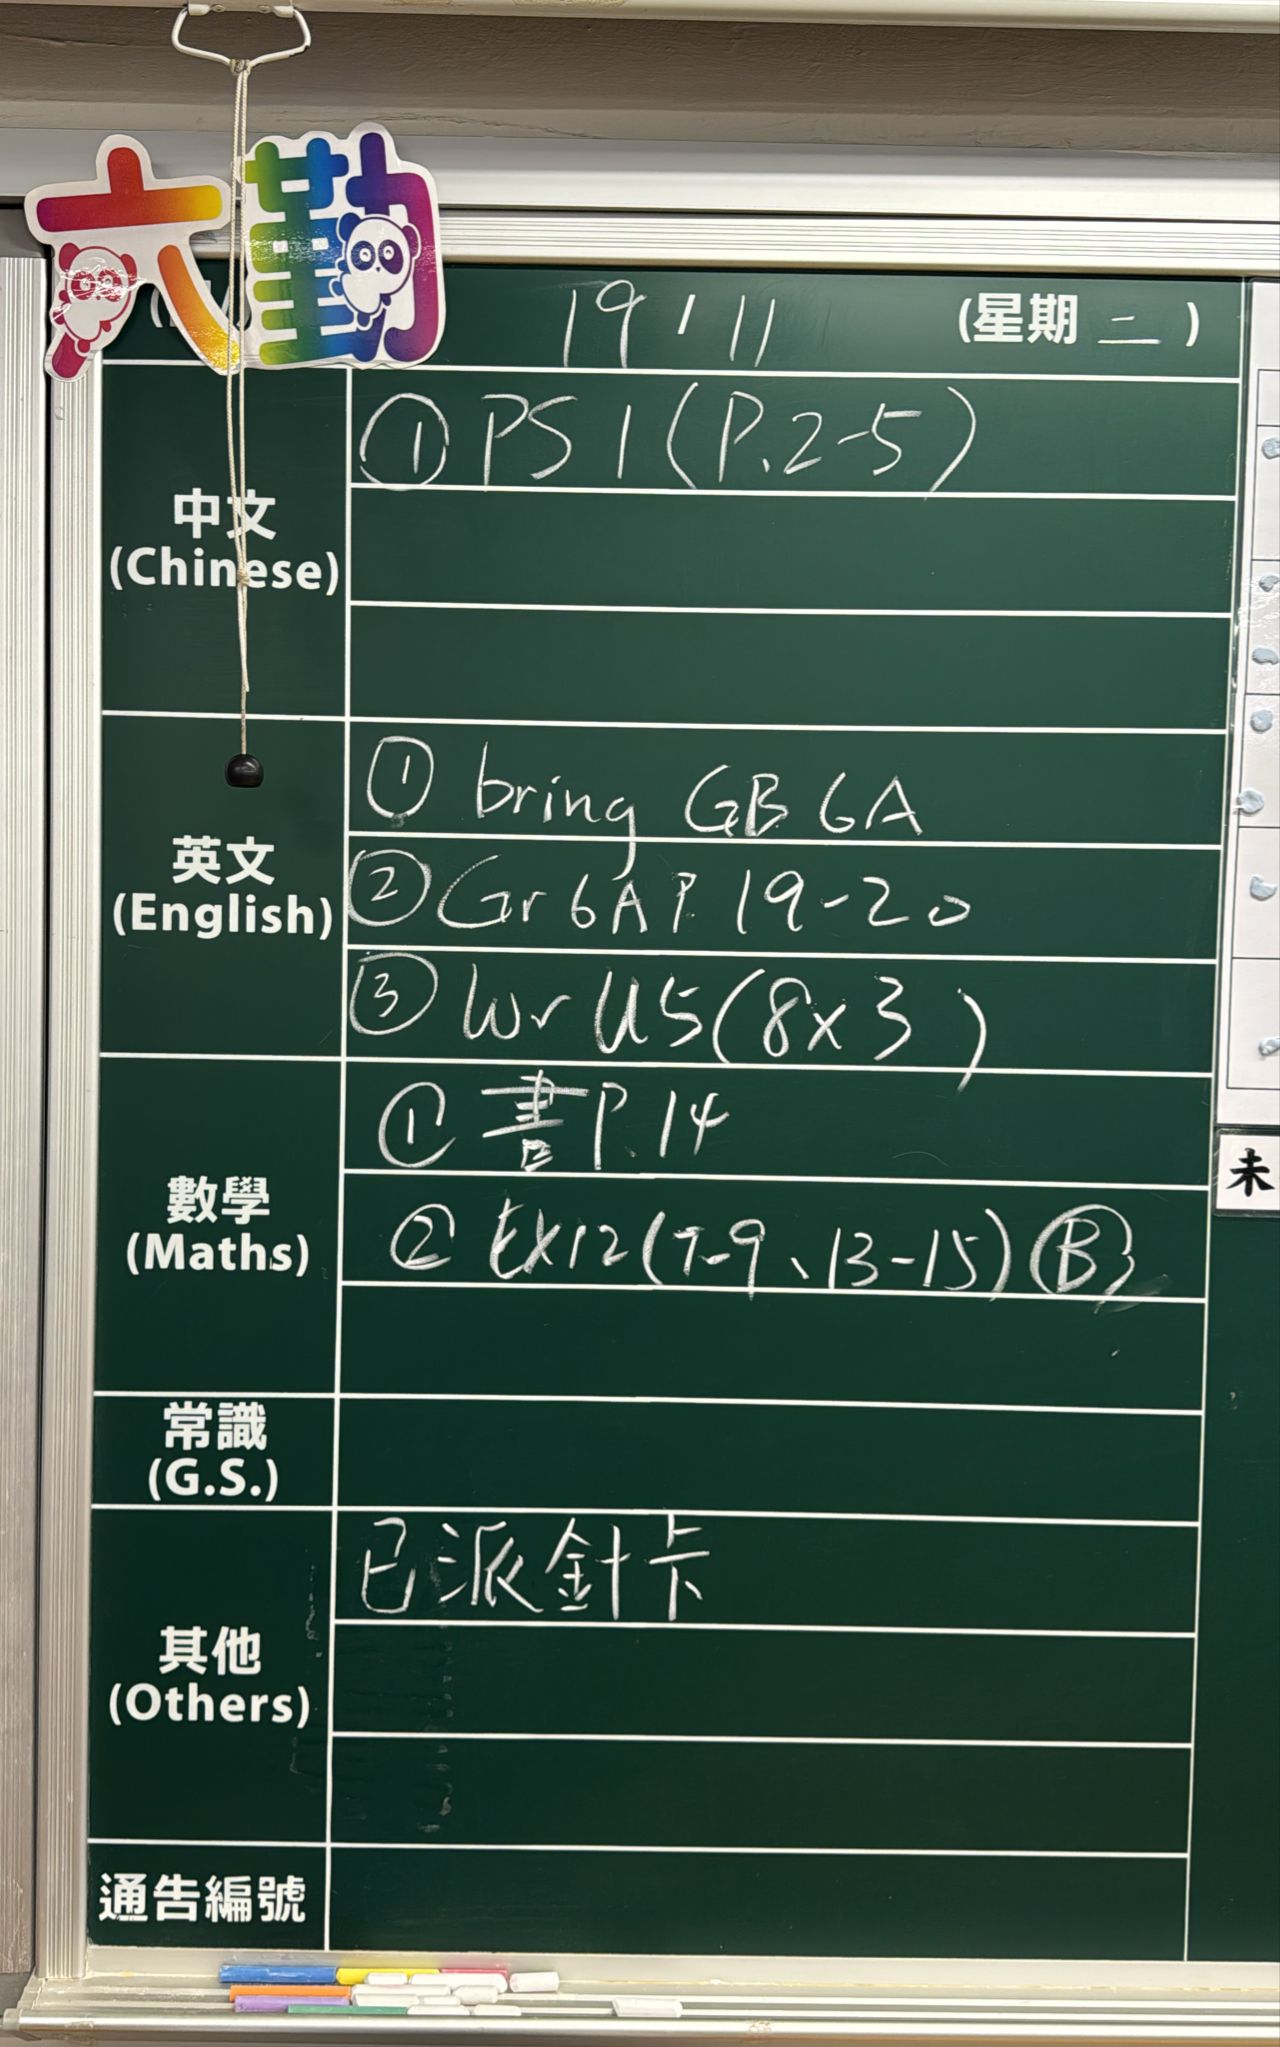 六勤
19 / 11 (星期 二 )
中文
(Chinese)
① PS 1 (P.2-5)
英文
(English)
① bring GB 6A
② Gr 6A P. 19-20
③ Wr U5 (8x3)
數學
(Maths)
① 書P.14
② EX12 (7-9、13-15) Ⓑ
常識
(G.S.)
其他
(Others)
已派針卡
通告編號
未